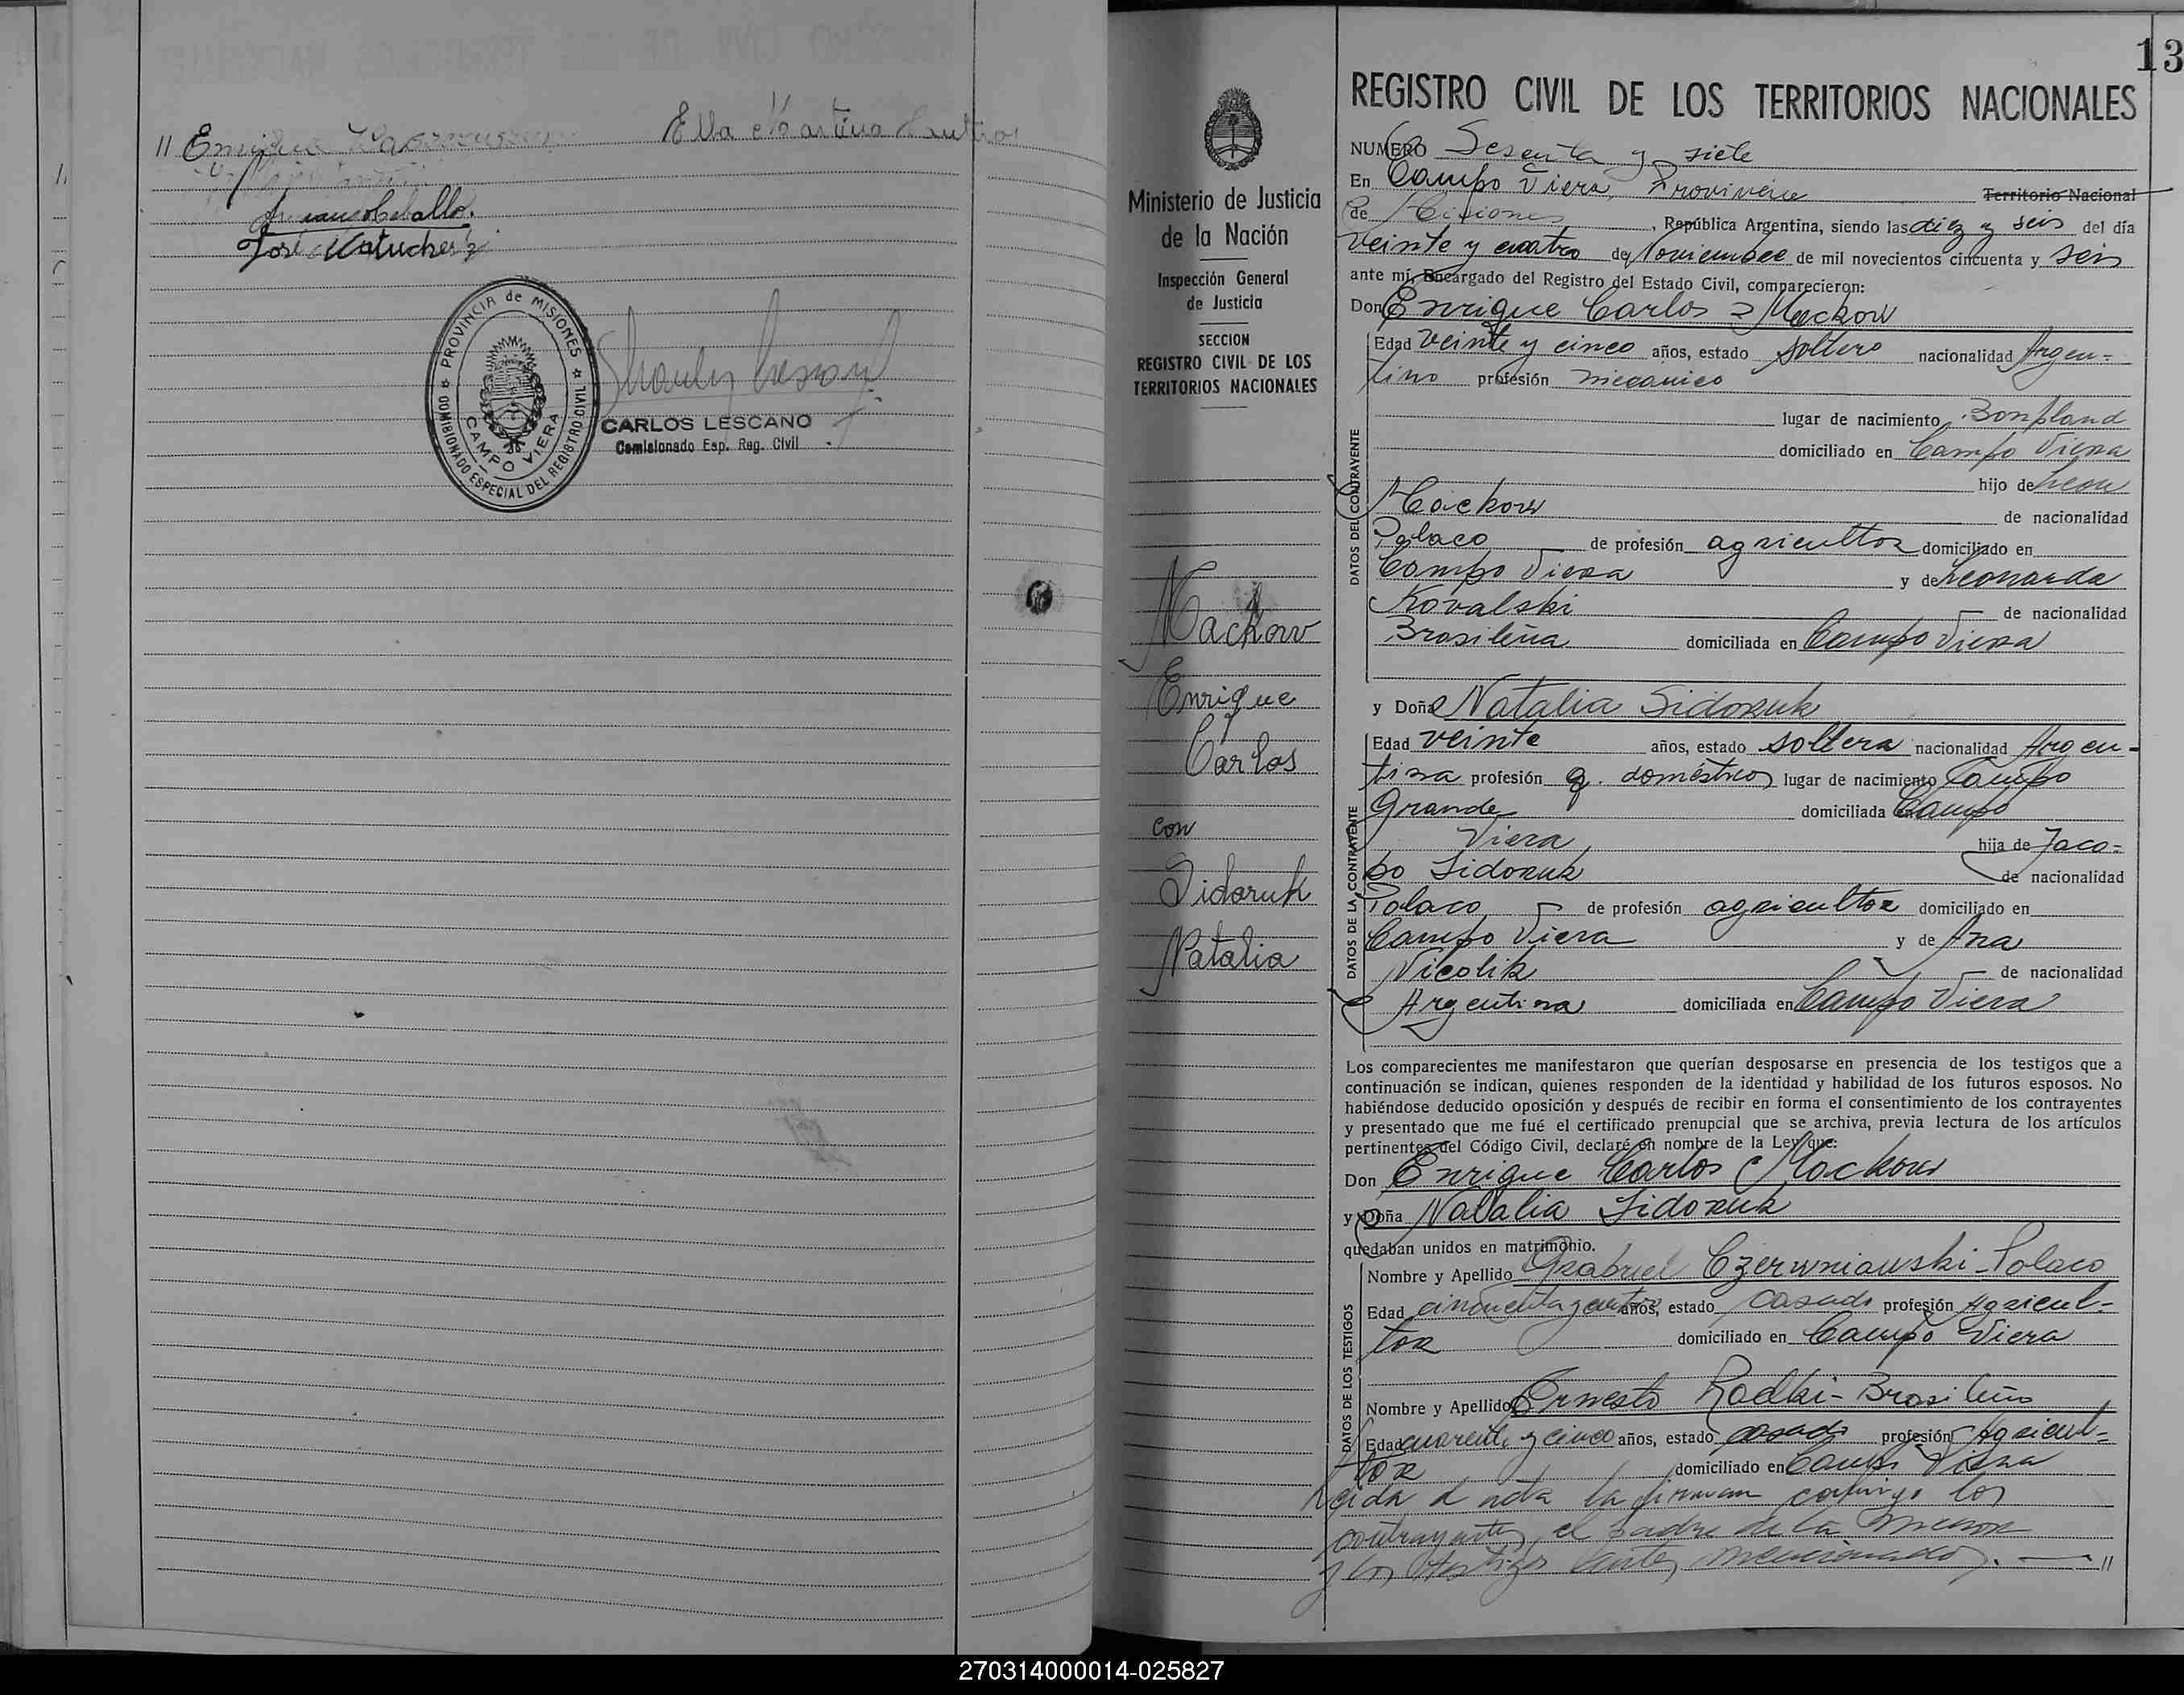 13
REGISTRO CIVIL DE LOS TERRITORIOS NACIONALES
Ella Martina
" Enrique
José
PROVINCIA de MISIONES
COMISIONADO ESPECIAL DEL REGISTRO CIVIL
CAMPO VIERA
CARLOS LESCANO
Comisionado Esp. Reg. Civil
Ministerio de Justicia
de la Nación
Inspección General
de Justicia
SECCION
REGISTRO CIVIL DE LOS
TERRITORIOS NACIONALES
Mackow
Enrique
Carlos
con
Sidoruk
Natalia
NUMERO Sesenta y siete
En Campo Viera, Provincia Territorio Nacional
de Misiones, República Argentina, siendo las diez y seis del día
veinte y cuatro de Noviembre de mil novecientos cincuenta y seis
ante mí, Encargado del Registro del Estado Civil, comparecieron:
Don Enrique Carlos Mackow
DATOS DEL CONTRAYENTE
Edad veinte y cinco años, estado soltero nacionalidad Argen=
tino profesión mecanico
lugar de nacimiento Bonpland
domiciliado en Campo Viera
hijo de Leon
Mackow de nacionalidad
Polaco de profesión agricultor domiciliado en
Campo Viera y de Leonarda
Kovalski de nacionalidad
Brasileña domiciliada en Campo Viera
y Doña Natalia Sidoruk
DATOS DE LA CONTRAYENTE
Edad veinte años, estado soltera nacionalidad Argen-
tina profesión q. domésticos lugar de nacimiento Campo
Grande domiciliada en Campo
Viera hija de Jaco=
bo Sidoruk de nacionalidad
Polaco de profesión agricultor domiciliado en
Campo Viera y de Ana
Nicolik de nacionalidad
Argentina domiciliada en Campo Viera
Los comparecientes me manifestaron que querían desposarse en presencia de los testigos que a
continuación se indican, quienes responden de la identidad y habilidad de los futuros esposos. No
habiéndose deducido oposición y después de recibir en forma el consentimiento de los contrayentes
y presentado que me fué el certificado prenupcial que se archiva, previa lectura de los artículos
pertinentes del Código Civil, declaré en nombre de la Ley que:
Don Enrique Carlos Mackow
y Doña Natalia Sidoruk
quedaban unidos en matrimonio.
DATOS DE LOS TESTIGOS
Nombre y Apellido Grabriel Czerwniawski - Polaco
Edad cincuenta y cuatro años, estado casado profesión Agricul-
tor domiciliado en Campo Viera
Nombre y Apellido Ernesto Radki - Brasileño
Edad cuarenta y cinco años, estado casado profesión Agricul=
tor domiciliado en Campo Viera
Leida el acta la firman conmigo los
contrayentes, el padre de la menor
y los testigos antes mencionados. — "
270314000014-025827